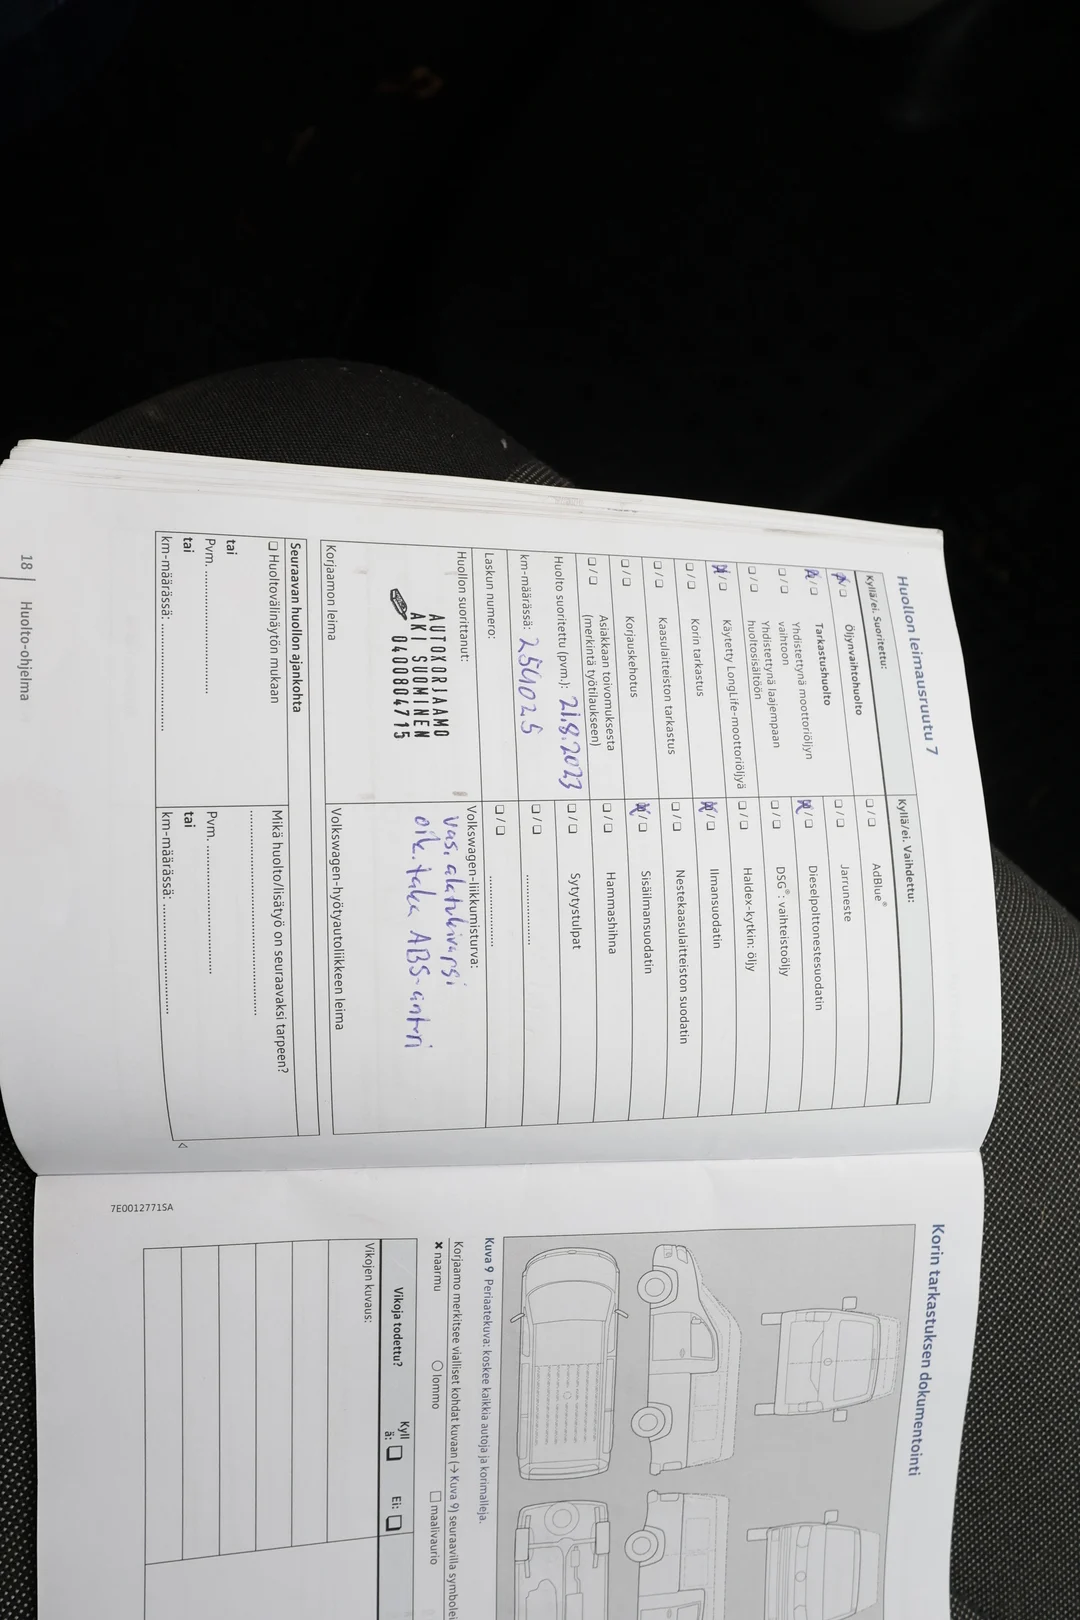 Huollon leimausruutu 7
Kyllä/ei. Suoritettu:
Öljynvaihtohuolto
Tarkastushuolto
Yhdistettynä moottoriöljyn
vaihtoon
Yhdistettynä laajempaan
huoltosisältöön
Käytetty LongLife-moottoriöljyä
Korin tarkastus
Kaasulaitteiston tarkastus
Korjauskehotus
Asiakkaan toivomuksesta
(merkintä työtilaukseen)
Huolto suoritettu (pvm.): 21.8.2023
km-määrässä: 254025
Laskun numero:
Kyllä/ei. Vaihdettu:
AdBlue®
Jarruneste
Dieselpolttonestesuodatin
DSG®: vaihteistoöljy
Haldex-kytkin: öljy
Ilmansuodatin
Nestekaasulaitteiston suodatin
Sisäilmansuodatin
Hammashihna
Sytytystulpat
Huollon suorittanut:
AUTOKORJAAMO
AKI SUOMINEN
0400804715
Korjaamon leima
Volkswagen-liikkumisturva:
vas. alatukivarsi
oik. taka ABS-anturi
Volkswagen-hyötyautoliikkeen leima
Seuraavan huollon ajankohta
Huoltovälinäytön mukaan
tai
Pvm.
tai
km-määrässä:
Mikä huolto/lisätyö on seuraavaksi tarpeen?
Pvm.
tai
km-määrässä:
18 | Huolto-ohjelma
Korin tarkastuksen dokumentointi
Kuva 9 Periaatekuva: koskee kaikkia autoja ja korimalleja.
Korjaamo merkitsee vialliset kohdat kuvaan (→ Kuva 9) seuraavilla
naarmu lommo maalivaurio
Vikoja todettu? Kyllä: Ei:
Vikojen kuvaus:
7E0012771SA